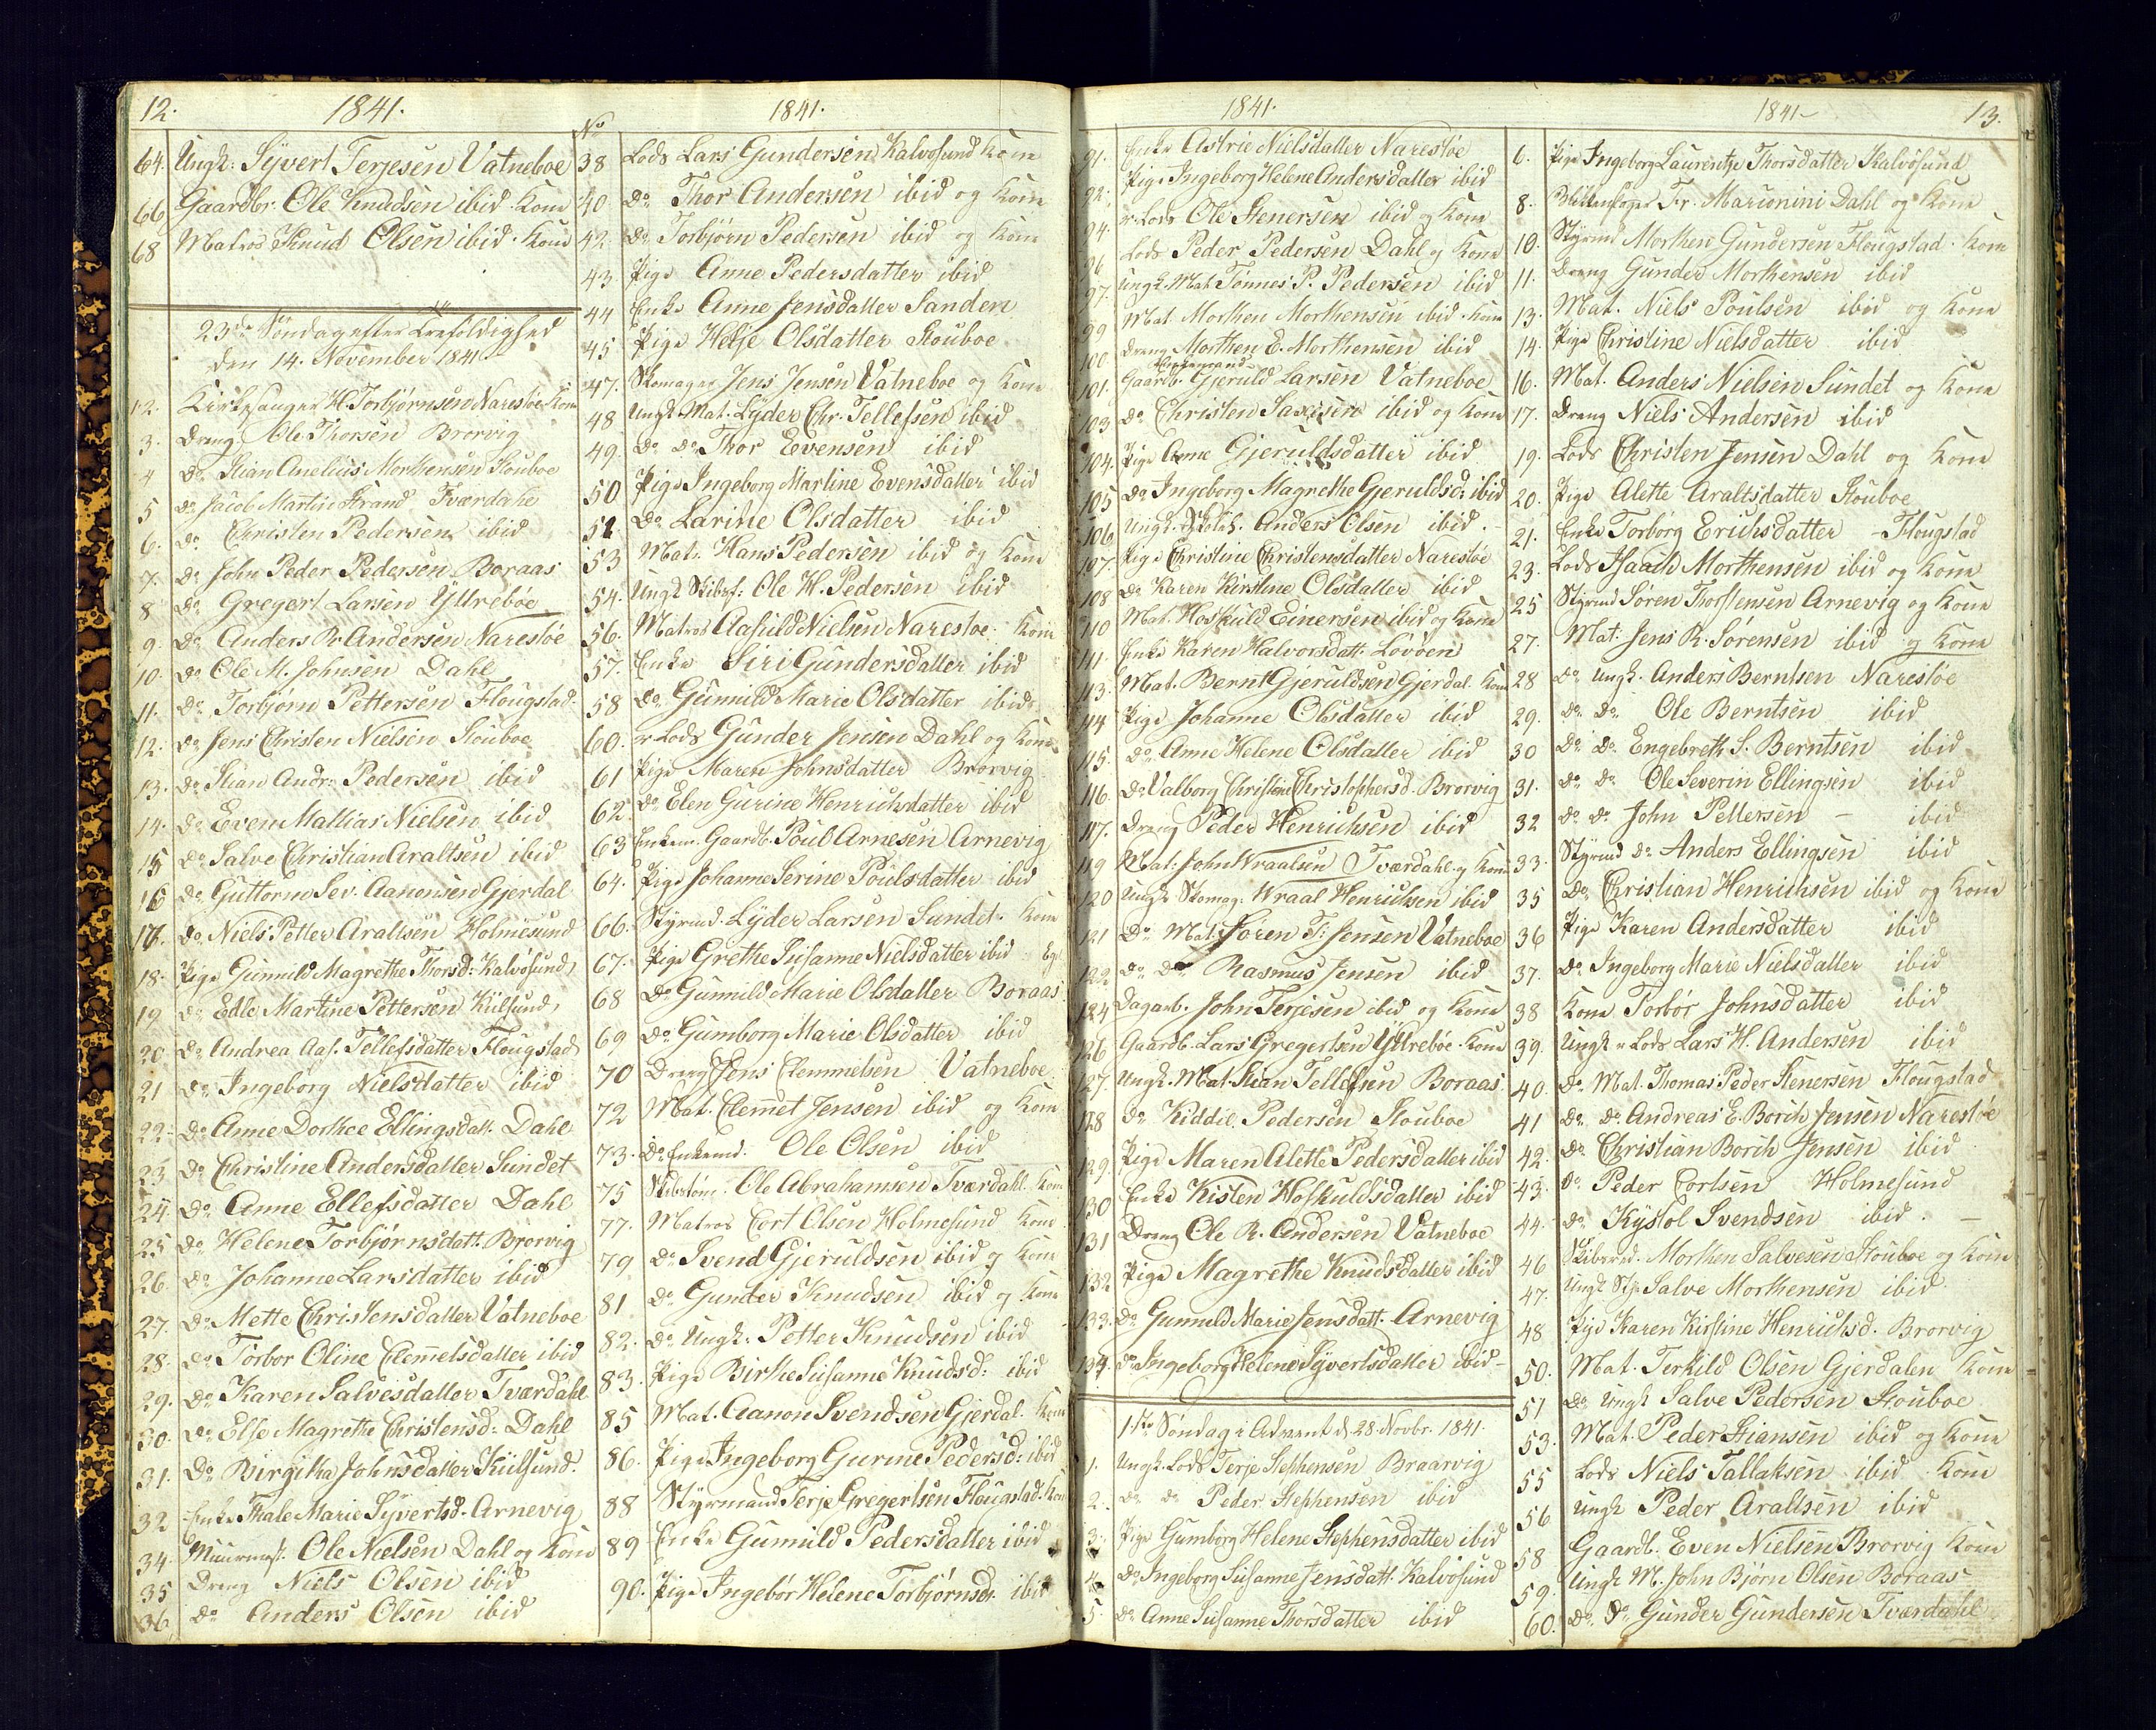 12. 1841. 1841.
64. Ungk: Syvert Terjesen Vatneboe
66 Gaardbr. Ole Knudsen ibid Kone
68 Matros Knud Olsen ibid. Kone
23de Søndag efter Trefoldighed
den 14. November 1841.
12. Kirkesanger H. Torbjørnsen Narestøe Kone
3. Dreng Ole Thorsen Brorvig
4 Do Stian Anelius Morthensen Stouboe
5 Do Jacob Martin Strand Tværdahl
6. Do Christen Pedersen ibid
7. Do John Peder Pedersen Boraas
8 Do Gregert Larsen Yttrebøe
9. Do Anders Pr Andersen Narestøe
10. Do Ole M. Johnsen Dahl
11. Do Torbjørn Pettersen Flougstad
12. Do Jens Christen Nielsen Stouboe
13. Do Stian Andr: Pedersen ibid
14. Do Even Mathias Nielsen ibid
15 Do Salve Christian Araltsen ibid
16 Do Guttorm Sev. Aanonsen Gjerdal
17. Do Niels Petter Araltsen Holmesund
18. Pige Gunnild Magrethe Thorsd: Kalvøsund
19 Do Edle Martine Pettersen Kilsund
20. Do Andrea Aas. Tellefsdatter Flougstad
21 Do Ingeborg Nielsdatter ibid
22. Do Anne Dorthea Ellingsdatt. Dahl
23. Do Christine Andersdatter Sundet
24. Do Anne Ellefsdatter Dahl
25 Do Helene Torbjørnsdatt. Brorvig
26. Do Johanne Larsdatter ibid
27. Do Mette Christensdatter Vatneboe
28. Do Torbor Oline Clemmetsdatter ibid
29. Do Karen Salvesdatter Tværdahl
30. Do Else Magrethe Christensd: Dahl
31. Do Birgitha Johnsdatter Kiilsund.
32 Enke Thale Marie Syvertsd. Arnevig
34. Muurmest. Ole Nielsen Dahl og Kone
35 Dreng Niels Olsen ibid
36. Do Anders Olsen ibid
No
38 Lods Lars Gundersen Kalvøsund Kone
40 Do Thor Andersen ibid og Kone
42. Do Torbjørn Pedersen ibid og Kone
43. Pige Anne Pedersdatter ibid
44 Enke Anne Jensdatter Sanden
45 Pige Helje Olsdatter Stouboe
47. Skomager Jens Jensen Vatneboe og Kone
48 Ungk. Mat. Lyder Chr. Tellefsen ibid
49. Do Do Thor Evensen ibid
50 Pige Ingeborg Martine Evensdatter ibid
51. Do Larine Olsdatter ibid
53 Mat. Hans Pedersen ibid og Kone
54. Ungk Skibsf: Ole H. Pedersen ibid
56. Matros Aasuld Nielsen Narestøe. Kone
57. Enke Siri Gundersdatter ibid
58 Do Gunnild Marie Olsdatter ibid
60. Lods Gunder Jensen Dahl og Kone
61 Pige Maren Johnsdatter Brorvig
62 Do Elen Gurine Henrichsdatter ibid
63 Enkem. Gaardb. Poul Arnesen Arnevig
64. Pige Johanne Serine Poulsdatter ibid
66. Styrmd. Lyder Larsen Sundet. Kone
67. Pige Grethe Susanne Nielsdatter ibid
68 Do Gunnild Marie Olsdatter Boraas
69 Do Gumborg Marie Olsdatter ibid
70 Dreng Jens Clemmetsen Vatneboe
72 Mat. Clemmet Jensen ibid og Kone
73. Do Enkemd. Ole Olsen ibid
75 Skibstøm. Ole Abrahamsen Tværdahl Kone
77. Matros Cort Olsen Holmesund Kone
79 Do Svend Gjeruldsen ibid og Kone
81 Do Gunder Knudsen ibid og Kone
82. Do Ungk. Petter Knudsen ibid
83. Pige Birthe Susanne Knudsd: ibid
85 Mat. Aanon Svendsen Gjerdal. Kone
86. Pige Ingeborg Gurine Pedersd: ibid
88 Styrmand Terje Gregertsen Flougstad. Kone
89 Enke Gunnild Pedersdatter ibid
90. Pige Ingebor Helene Torbjørnsdr. ibid
1841. 1841 13.
91. Enke Astrie Nielsdatter Narestøe
92. Pige Ingeborg Helene Andersdatter ibid
94. Lods Ole Stenersen ibid og Kone
96 Lods Peder Pedersen Dahl og Kone
97. Ungk. Mat. Tønnes P. Pedersen ibid
99 Mat. Morthen Morthensen ibid. Kone
100. Dreng Morthen E. Morthensen ibid
101. Gaardb. Enkemand Gjeruld Larsen Vatneboe
103 Do Christen Saxesen ibid og Kone
104. Pige Anne Gjeruldsdatter ibid
105 Do Ingeborg Magrethe Gjeruldsd: ibid
106 Ungk. Anders Olsen ibid.
107. Pige Christine Christensdatter Narestøe
108 Do Karen Kirstine Olsdatter ibid
110 Mat. Hoskuld Einersen ibid og Kone
111. Enke Karen Halvorsdatt: Løvøen
113. Mat. Bernt Gjeruldsen Gjerdal. Kone
114 Pige Johanne Olsdatter ibid
115. Do Anne Helene Olsdatter ibid
116. Do Valborg Christine Christophersd. Brorvig
117. Dreng Peder Henrichsen ibid
119 Mat: John Wraalsen Tværdahl og Kone
120 Ungk Skomag. Wraal Henrichsen ibid
121 Do Mat. Søren T: Jensen Vatneboe
122 Do Do Rasmus Jensen ibid
124 Dagarb. John Terjesen ibid og Kone
126 Gaardb. Lars Gregertsen Yttrebøe. Kone
127. Ungk. Mat. Stian Tellefsen Boraas
128 Do Kiddil Pedersen Stouboe
129. Pige Maren Alette Pedersdatter ibid
130 Enke Kisten Hoskuldsdatter ibid
131 Dreng Ole R. Andersen Vatneboe
132 Pige Magrethe Knudsdatter ibid
133. Do Gunnuld Marie Jensdatt. Arnevig
134. Do Ingeborg Helene Syvertsdatter ibid
1ste Søndag i Advent d. 28. Novbr. 1841.
1. Ungk. Lods Terje Stephensen Braarvig
2. Do Do Peder Stephensen ibid
3. Pige Gumborg Helene Stephensdatter ibid
4. Do Ingeborg Susanne Jensdatt. Kalvøsund
5. Do Anne Susanne Thorsdatter ibid
6. Pige Ingeborg Laurentze Thorsdatter Kalvøsund
8. Fr. Marionini Dahl og Kone
10. Styrmd Morthen Gundersen Flougstad. Kone
11. Dreng Gunder Morthensen ibid
13. Mat. Niels Poulsen ibid og Kone
14. Pige Christine Nielsdatter ibid
16. Mat. Anders Nielsen Sundet og Kone
17. Dreng Niels Andersen ibid
19. Lods Christen Jensen Dahl og Kone
20. Pige Alette Araltsdatter Stouboe
21. Enke Torborg Erichsdatter - Flougstad
23. Lods Isaach Morthensen ibid og Kone
25 Styrmd Søren Thorstensen Arnevig og Kone
27. Mat: Jens R. Sørensen ibid og Kone
28 Do Ungk. Anders Berntsen Narestøe
29. Do Do Ole Berntsen ibid
30 Do Do Engebreth S. Berntsen ibid
31. Do Do Ole Severin Ellingsen ibid
32 Do Do John Pettersen - ibid
33. Styrmd Do Anders Ellingsen ibid
35 Do Christian Henrichsen ibid og Kone
36 Pige Karen Andersdatter ibid
37. Do Ingeborg Marie Nielsdatter ibid
38 Kone Torbor Johnsdatter ibid
39. Ungk Lods Lars H. Andersen ibid
40. Do Mat. Thomas Peder Stenersen Flougstad
41 Do Do Andreas E. Borch Jensen Narestøe
42. Do Christian Borch Jensen ibid
43. Do Peder Cortsen Holmesund
44. Do Kystol Svendsen ibid.
46 Skibsrd. Morthen Salvesen Stouboe og Kone
47. Ungk Sty. Salve Morthensen ibid
48 Pige Karen Kirstine Henrichsd. Brorvig
50. Mat. Terkild Olsen Gjerdalen Kone
51 Do Ungk Salve Pedersen Stouboe
53. Mat. Peder Stiansen ibid og Kone
55 Lods Niels Tallaksen ibid Kone
56 Ungk Peder Araltsen ibid
58 Gaardb. Even Nielsen Brorvig Kone
59. Ungk M. John Bjørn Olsen Boraas
60. Do Do Gunder Gundersen Tværdahl